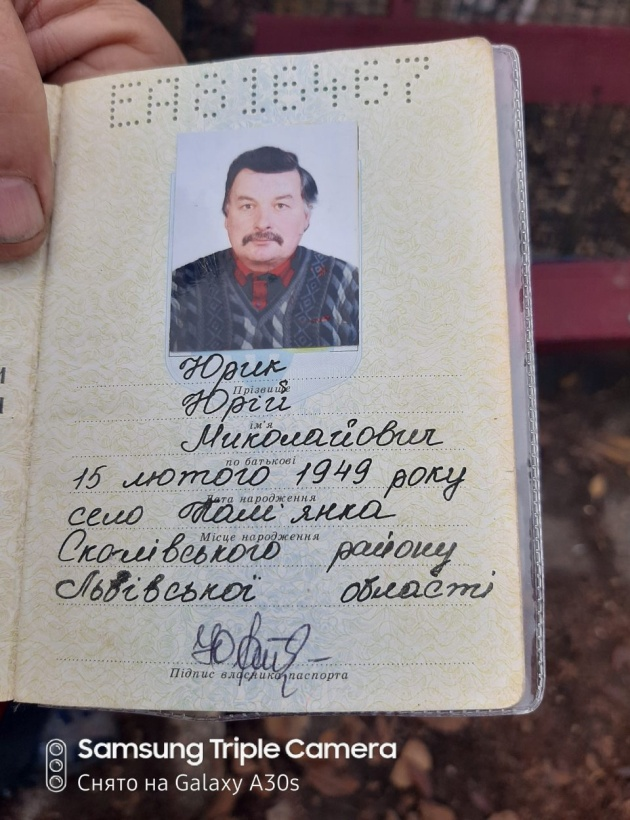 ЕА818467
Юрик
Прізвище
Юрій
ім'я
Миколайович
по батькові
15 лютого 1949 року
Дата народження
село
Місце народження
Сколівського району
Львівської області
Підпис власника паспорта
Samsung Triple Camera
Снято на Galaxy A30s